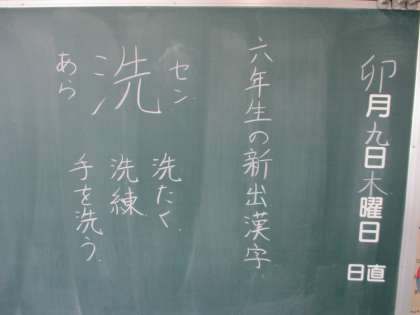 卯月九日木曜日
日直
六年生の新出漢字
セン
洗
あら
洗たく
洗練
手を洗う